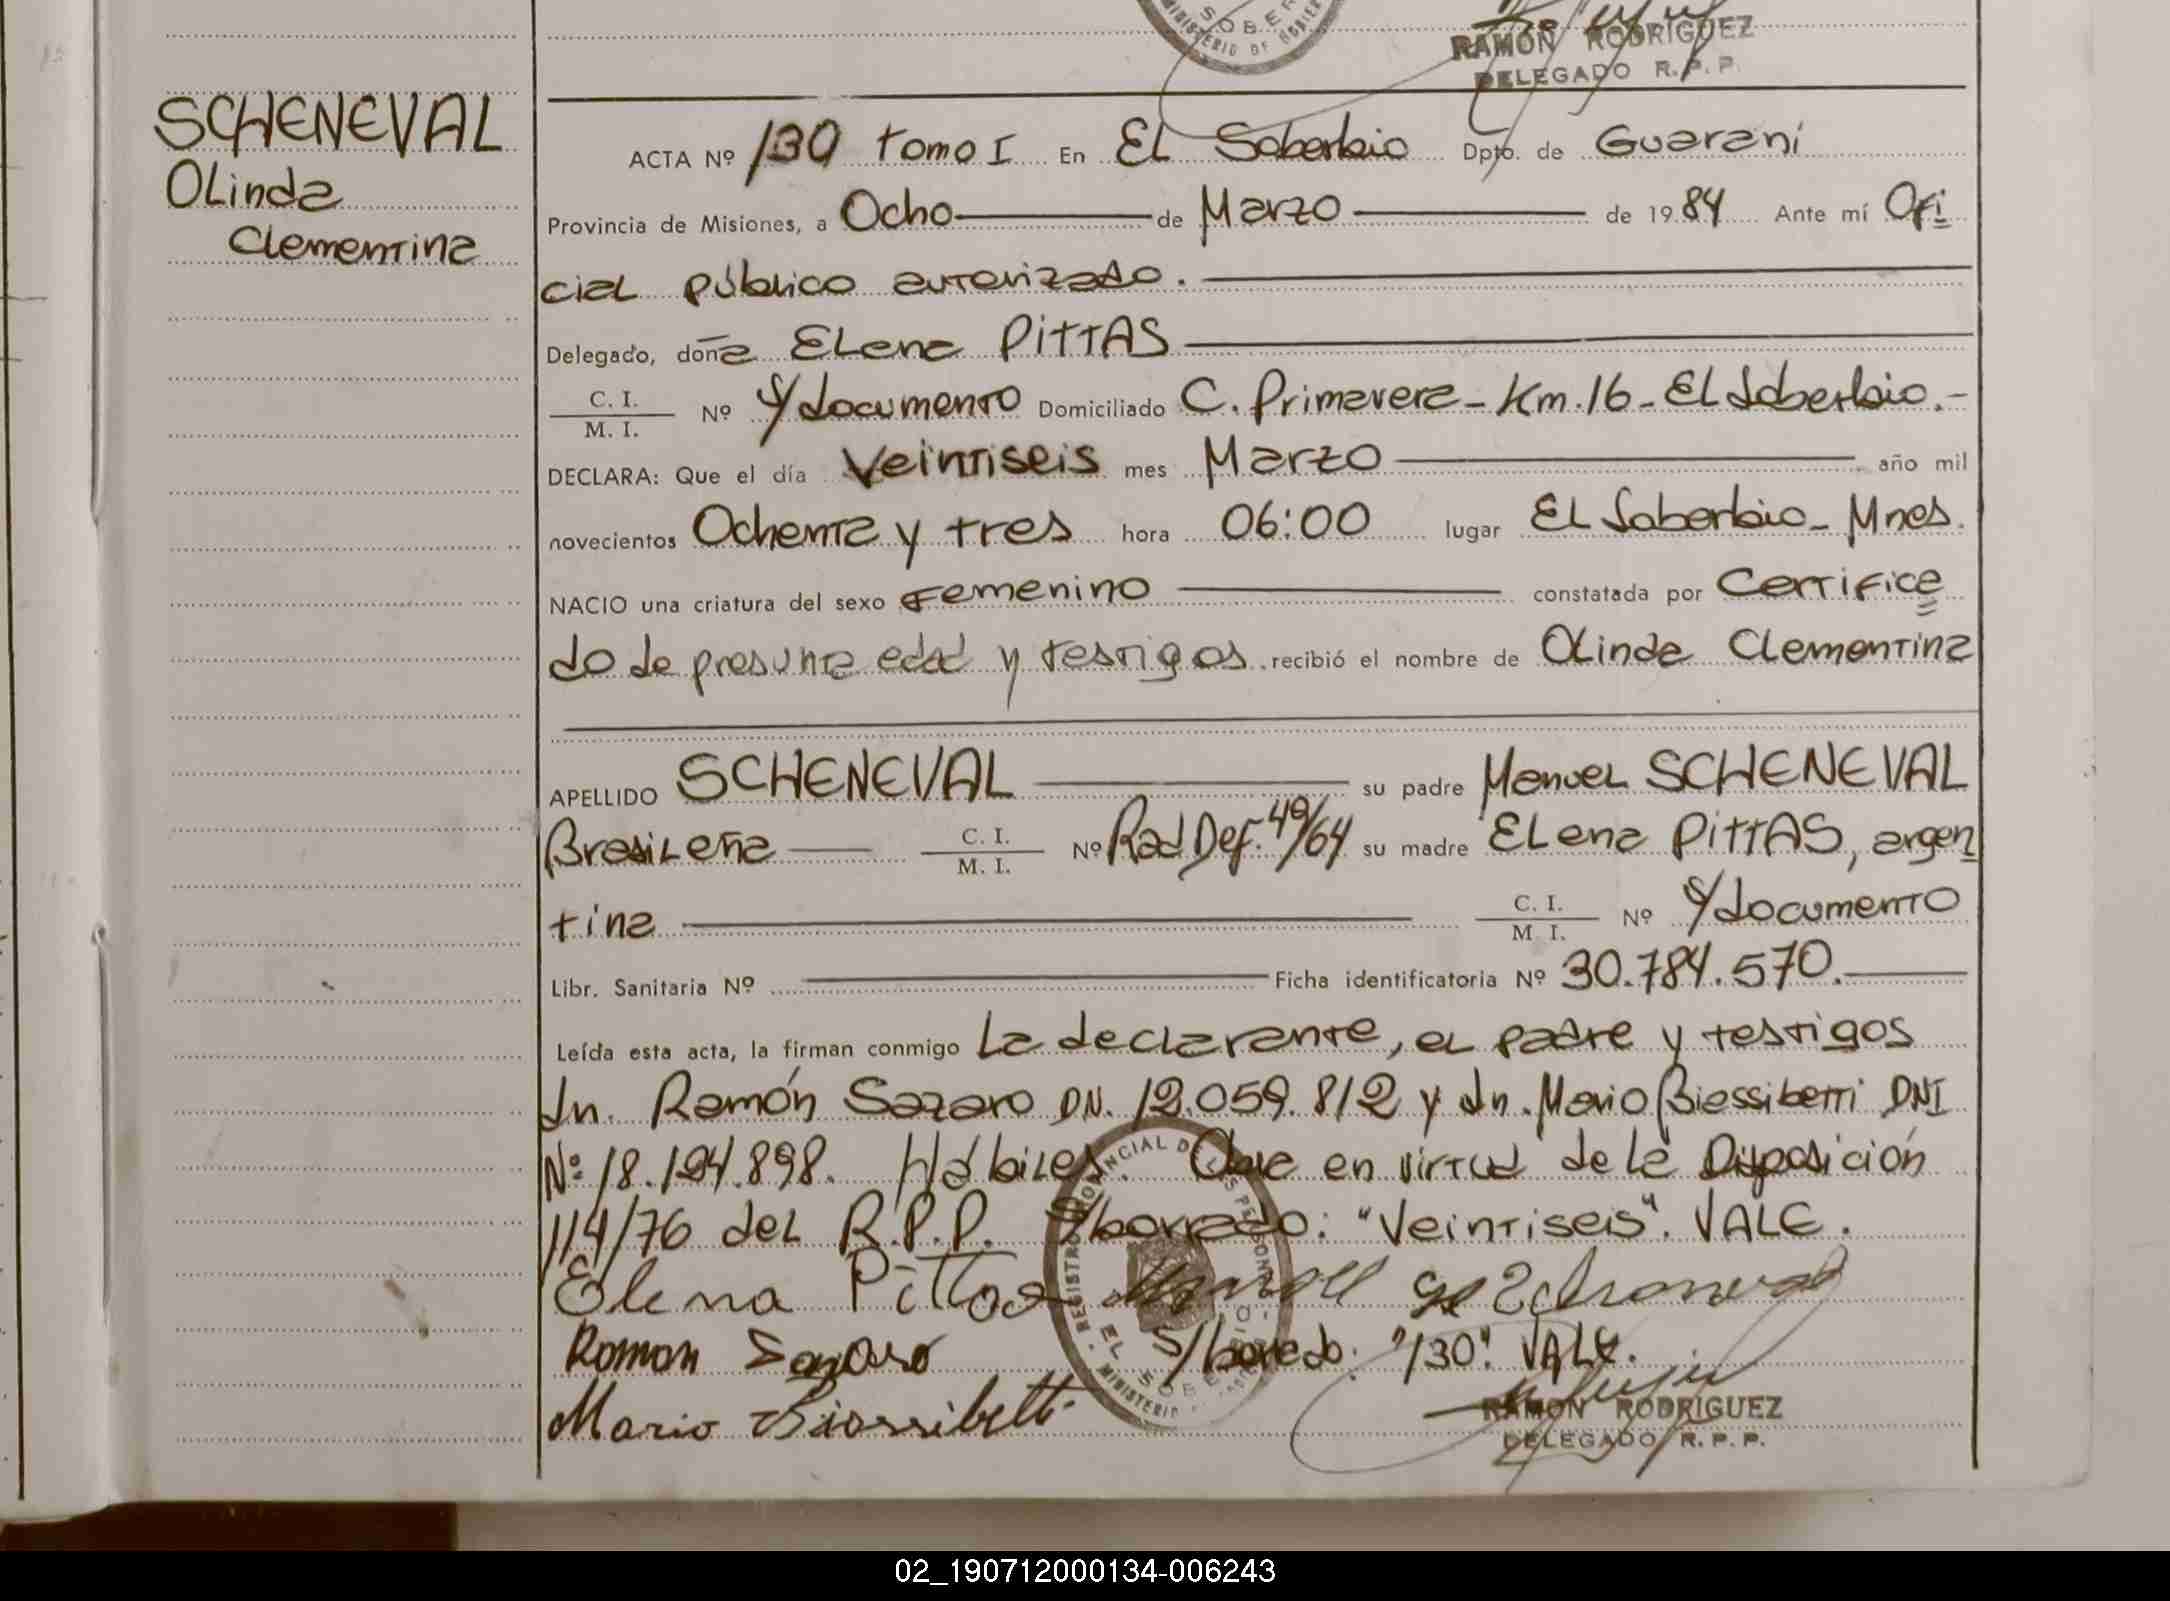 SOBER
MINISTERIO DE GOBIER
RAMÓN RODRÍGUEZ
DELEGADO R.P.P.
SCHENEVAL
Olinda
Clementina
ACTA Nº 130 tomo I En El Soberbio Dpto. de Guaraní
Provincia de Misiones, a Ocho de Marzo de 1984 Ante mí Ofi
cial público autorizado.
Delegado, doña Elena PittAS
C. I.
M. I. Nº S/documento Domiciliado C. Primavera - Km. 16 - El Soberbio.-
DECLARA: Que el día Veintiseis mes Marzo año mil
novecientos Ochenta y tres hora 06:00 lugar El Soberbio - Mnes.
NACIO una criatura del sexo Femenino constatada por Certifica
do de presunta edad y testigos recibió el nombre de Olinda Clementina
APELLIDO SCHENEVAL su padre Manuel SCHENEVAL
Brasileña C. I. M. I. Nº Rad Def. 49/64 su madre Elena PittAS, argen
tina C. I. M. I. Nº S/documento
Libr. Sanitaria Nº Ficha identificatoria Nº 30.784.570.
Leída esta acta, la firman conmigo La declarante, el padre y testigos
Dn. Ramón Sazaro DN. 12.059.812 y Dn. Mario Biassibetti DNI
Nº 18.194.898. Hábiles. Obre en virtud de la Disposición
114/76 del R.P.P. S/borrado: "Veintiseis". VALE.
Elena Pittas
Ramon Sazaro S/borrado. "130". VALE.
Mario Biassibetti
REGISTRO PROVINCIAL DE LAS PERSONAS
EL SOBERBIO
MINISTERIO
RAMÓN RODRÍGUEZ
DELEGADO R.P.P.
02_190712000134-006243